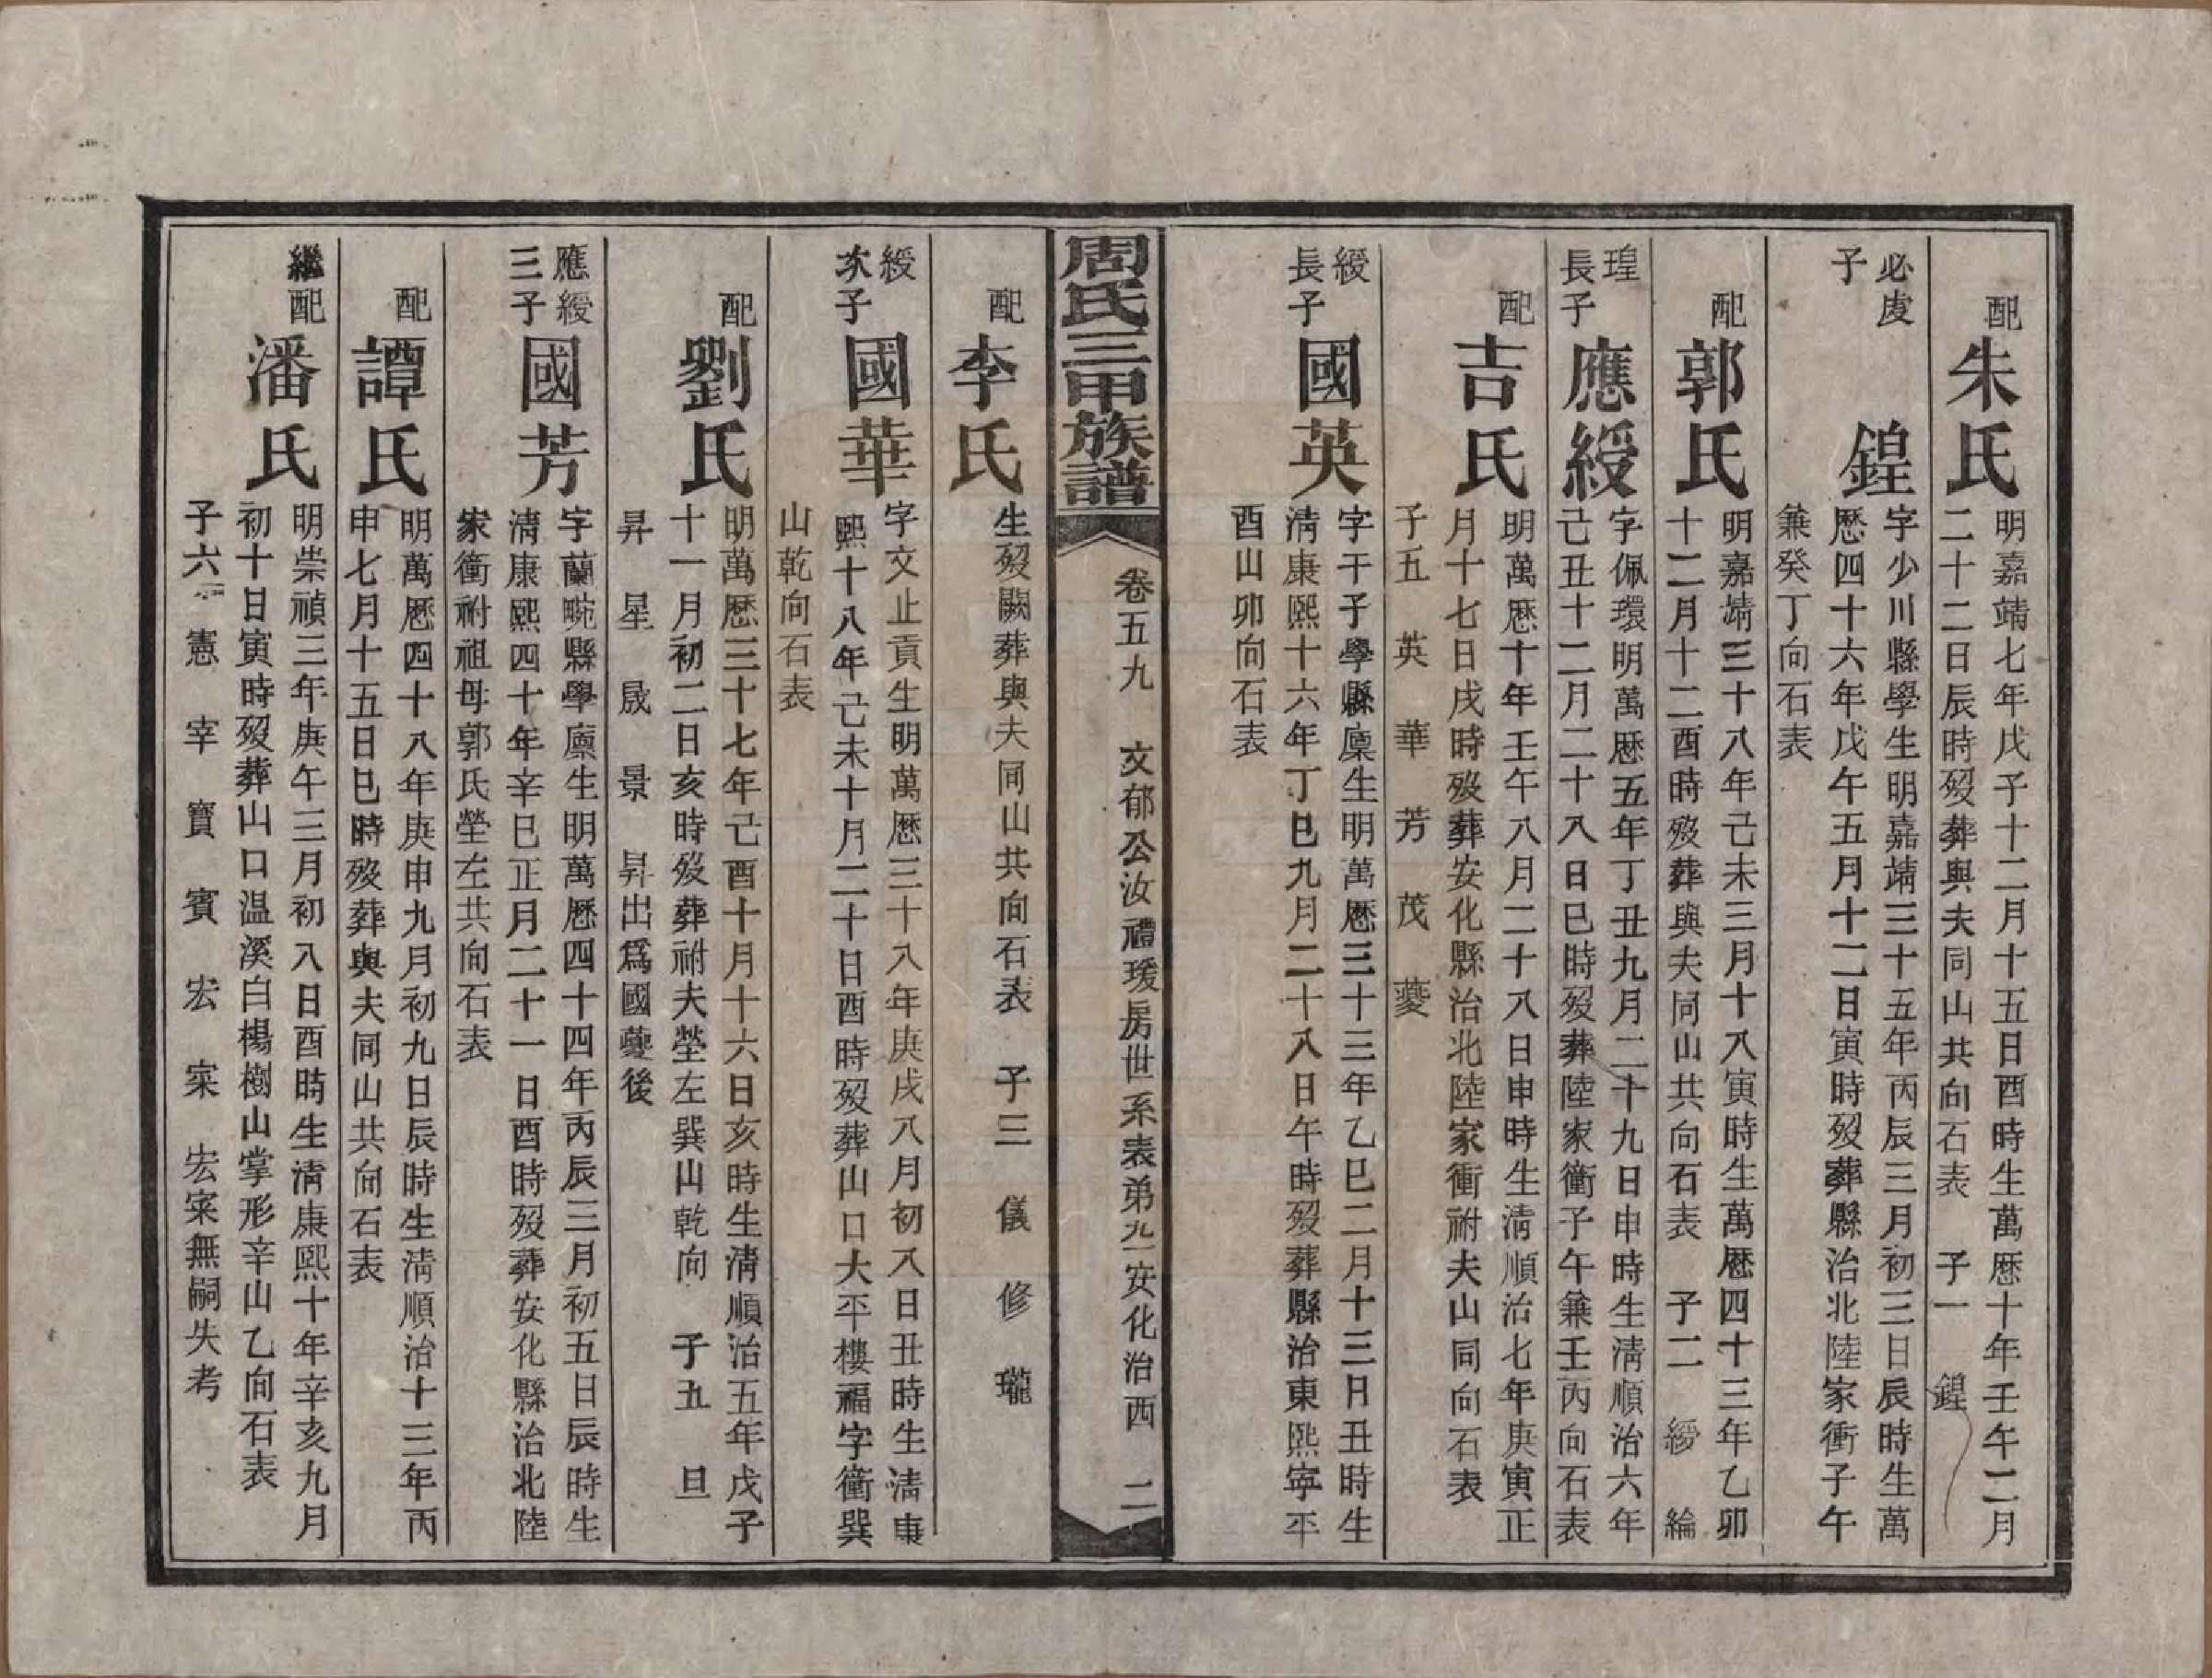 配朱氏
明嘉靖七年戊子十二月十五日酉時生萬歷十年壬午二月
二十二日辰時歿葬與夫同山共向石表　子一　鍠
必虔
子
鍠
字少川縣學生明嘉靖三十五年丙辰三月初三日辰時生萬
歷四十六年戊午五月十二日寅時歿葬縣治北陸家衝子午
兼癸丁向石表
配郭氏
明嘉靖三十八年己未三月十八寅時生萬歷四十三年乙卯
十二月十二酉時歿葬與夫同山共向石表　子二　綬　綸
瑝
長子
應綬
字佩環明萬歷五年丁丑九月二十九日申時生淸順治六年
己丑十二月二十八日巳時歿葬陸家衝子午兼壬丙向石表
配吉氏
明萬歷十年壬午八月二十八日申時生淸順治七年庚寅正
月十七日戌時歿葬安化縣治北陸家衝祔夫山同向石表
子五　英　華　芳　茂　夔
綬
長子
國英
字干子學縣廩生明萬歷三十三年乙巳二月十三日丑時生
淸康熙十六年丁巳九月二十八日午時歿葬縣治東熙寧平
酉山卯向石表
周氏三甲族譜
卷五九　文郁公汝禮瑗房世系表弟九一安化治西　二
配李氏
生歿闕葬與夫同山共向石表　子三　儀　修　瓏
綬
次子
國華
字文止貢生明萬歷三十八年庚戌八月初八日丑時生淸康
熙十八年己未十月二十日酉時歿葬山口大平樓福字衝巽
山乾向石表
配劉氏
明萬歷三十七年己酉十月十六日亥時生淸順治五年戊子
十一月初二日亥時歿葬祔夫塋左巽山乾向　子五　旦
昇　星　晟　景　昇出爲國夔後
應綬
三子
國芳
字蘭畹縣學廩生明萬歷四十四年丙辰三月初五日辰時生
淸康熙四十年辛巳正月二十一日酉時歿葬安化縣治北陸
家衝祔祖母郭氏塋左共向石表
配譚氏
明萬歷四十八年庚申九月初九日辰時生淸順治十三年丙
申七月十五日巳時歿葬與夫同山共向石表
繼配潘氏
明崇禎三年庚午三月初八日酉時生淸康熙十年辛亥九月
初十日寅時歿葬山口温溪白楊樹山掌形辛山乙向石表
子六　憲　宰　寶　賓　宏　寀　宏寀無嗣失考